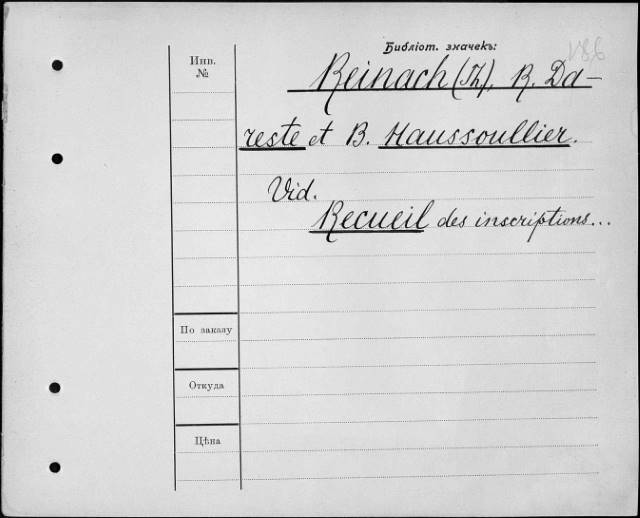 Библіот. значекъ:
186
Инв.
№
Reinach (Th), R. Da-
reste et B. Haussoullier.
Vid.
Recueil des inscriptions...
По заказу
Откуда
Цѣна